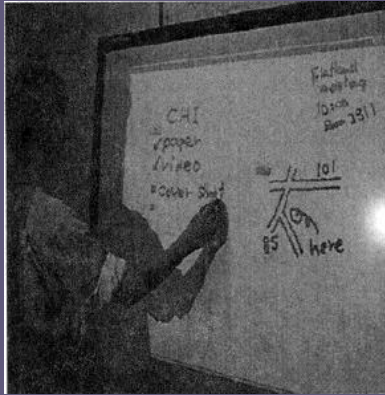 CHI
✓paper
✓video
▪cover sheet
▪
Flatland
meeting
10:00
Room 3911
101
85
here